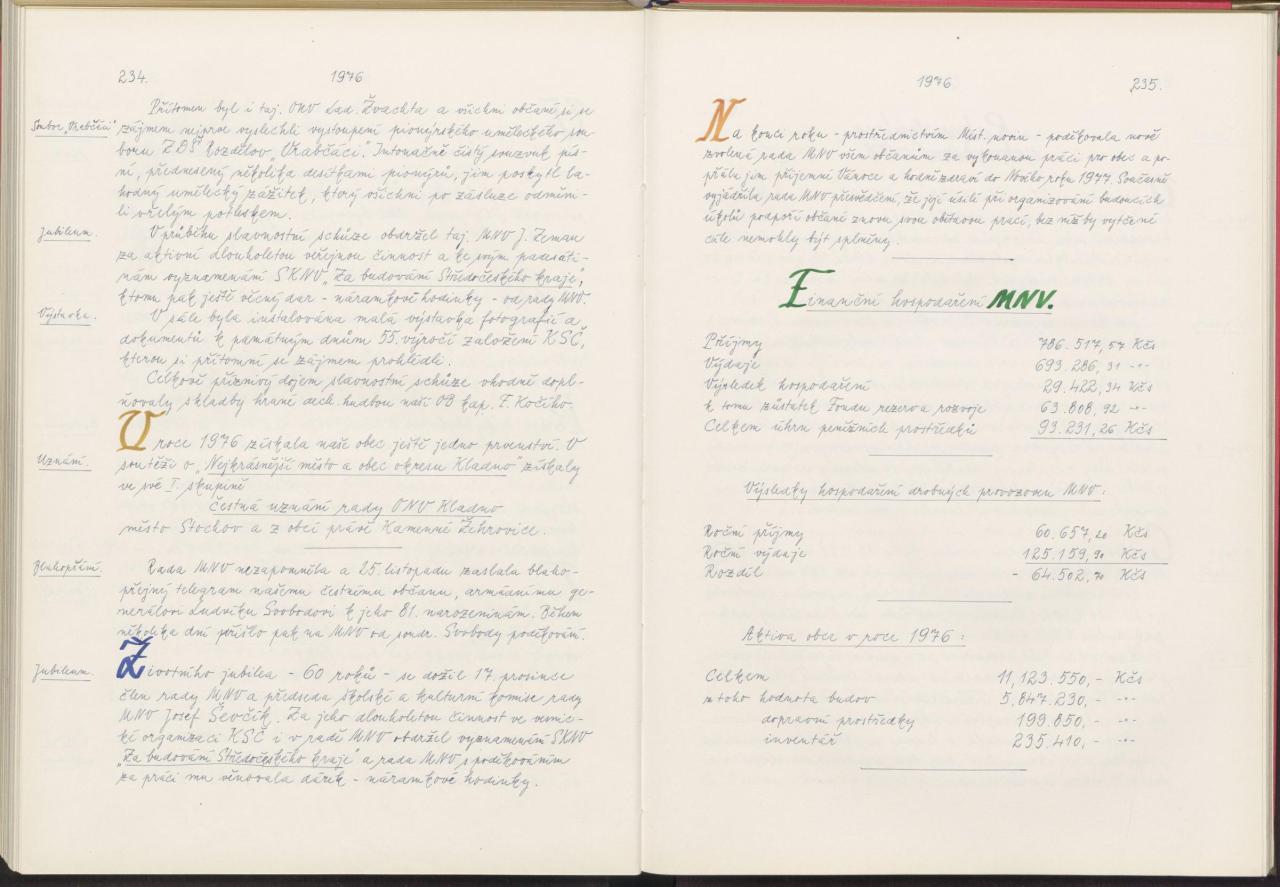 234.
1976
Přítomen byl i taj. ONV Lad. Žvachta a všichni občané si se
Soubor „Vrabčáci“
zájmem nejprve vyslechli vystoupení pionýrského uměleckého sou-
boru ZDŠ Rozdělov „Vrabčáci“. Intonačně čistý souzvuk pís-
ní, přednesený několika desítkami pionýrů, jim poskytl la-
hodný umělecký zážitek, který všichni po zásluze odměni-
li vřelým potleskem.
Jubileum.
V průběhu slavnostní schůze obdržel taj. MNV J. Zeman
za aktivní dlouholetou veřejnou činnost a ke svým padesáti-
nám vyznamenání SKNV „Za budování Středočeského kraje“,
k tomu pak ještě věcný dar - náramkové hodinky - od rady MNV.
Výstavka.
V sále byla instalována malá výstavka fotografií a
dokumentů k památným dnům 55. výročí založení KSČ,
kterou si přítomní se zájmem prohlédli.
Celkově příznivý dojem slavnostní schůze vhodně dopl-
ňovaly skladby hrané dech. hudbou naší OB kap. F. Kočího.
V roce 1976 získala naše obec ještě jedno prvenství. V
Uznání.
soutěži o „Nejkrásnější město a obec okresu Kladno“ získaly
ve své I. skupině
čestná uznání rady ONV Kladno
město Stochov a z obcí právě Kamenné Žehrovice.
Blahopřání.
Rada MNV nezapomněla a 25. listopadu zaslala blaho-
přejný telegram našemu čestnému občanu, armádnímu ge-
nerálovi Ludvíku Svobodovi k jeho 81. narozeninám. Během
několika dní přišlo pak na MNV od soudr. Svobody poděkování.
Jubileum.
Životního jubilea - 60 roků - se dožil 17. prosince
člen rady MNV a předseda školské a kulturní komise rady
MNV Josef Ševčík. Za jeho dlouholetou činnost ve vesnic-
ké organizaci KSČ i v radě MNV obdržel vyznamenání SKNV
„Za budování Středočeského kraje“ a rada MNV s poděkováním
za práci mu věnovala dárek - náramkové hodinky.
1976
235.
Na konci roku - prostřednictvím Míst. novin - poděkovala nově
zvolená rada MNV všem občanům za vykonanou práci pro obec a po-
přála jim příjemné Vánoce a hodně zdraví do Nového roku 1977. Současně
vyjádřila rada MNV přesvědčení, že její úsilí při organizování budoucích
úkolů podpoří občané znovu svou obětavou prací, bez níž by vytčené
cíle nemohly být splněny.
Finanční hospodaření MNV.
Příjmy 786.517,57 Kčs
Výdaje 693.286,31 -"-
Výsledek hospodaření 29.422,34 Kčs
k tomu zůstatek Fondu rezerv a rozvoje 63.808,92 -"-
Celkem úhrn peněžních prostředků 93.231,26 Kčs
Výsledky hospodaření drobných provozoven MNV:
Roční příjmy 60.657,20 Kčs
Roční výdaje 125.159,90 Kčs
Rozdíl - 64.502,70 Kčs
Aktiva obce v roce 1976:
Celkem 11,123.550,- Kčs
z toho hodnota budov 5,847.230,- -"-
dopravní prostředky 199.850,- -"-
inventář 235.410,- -"-